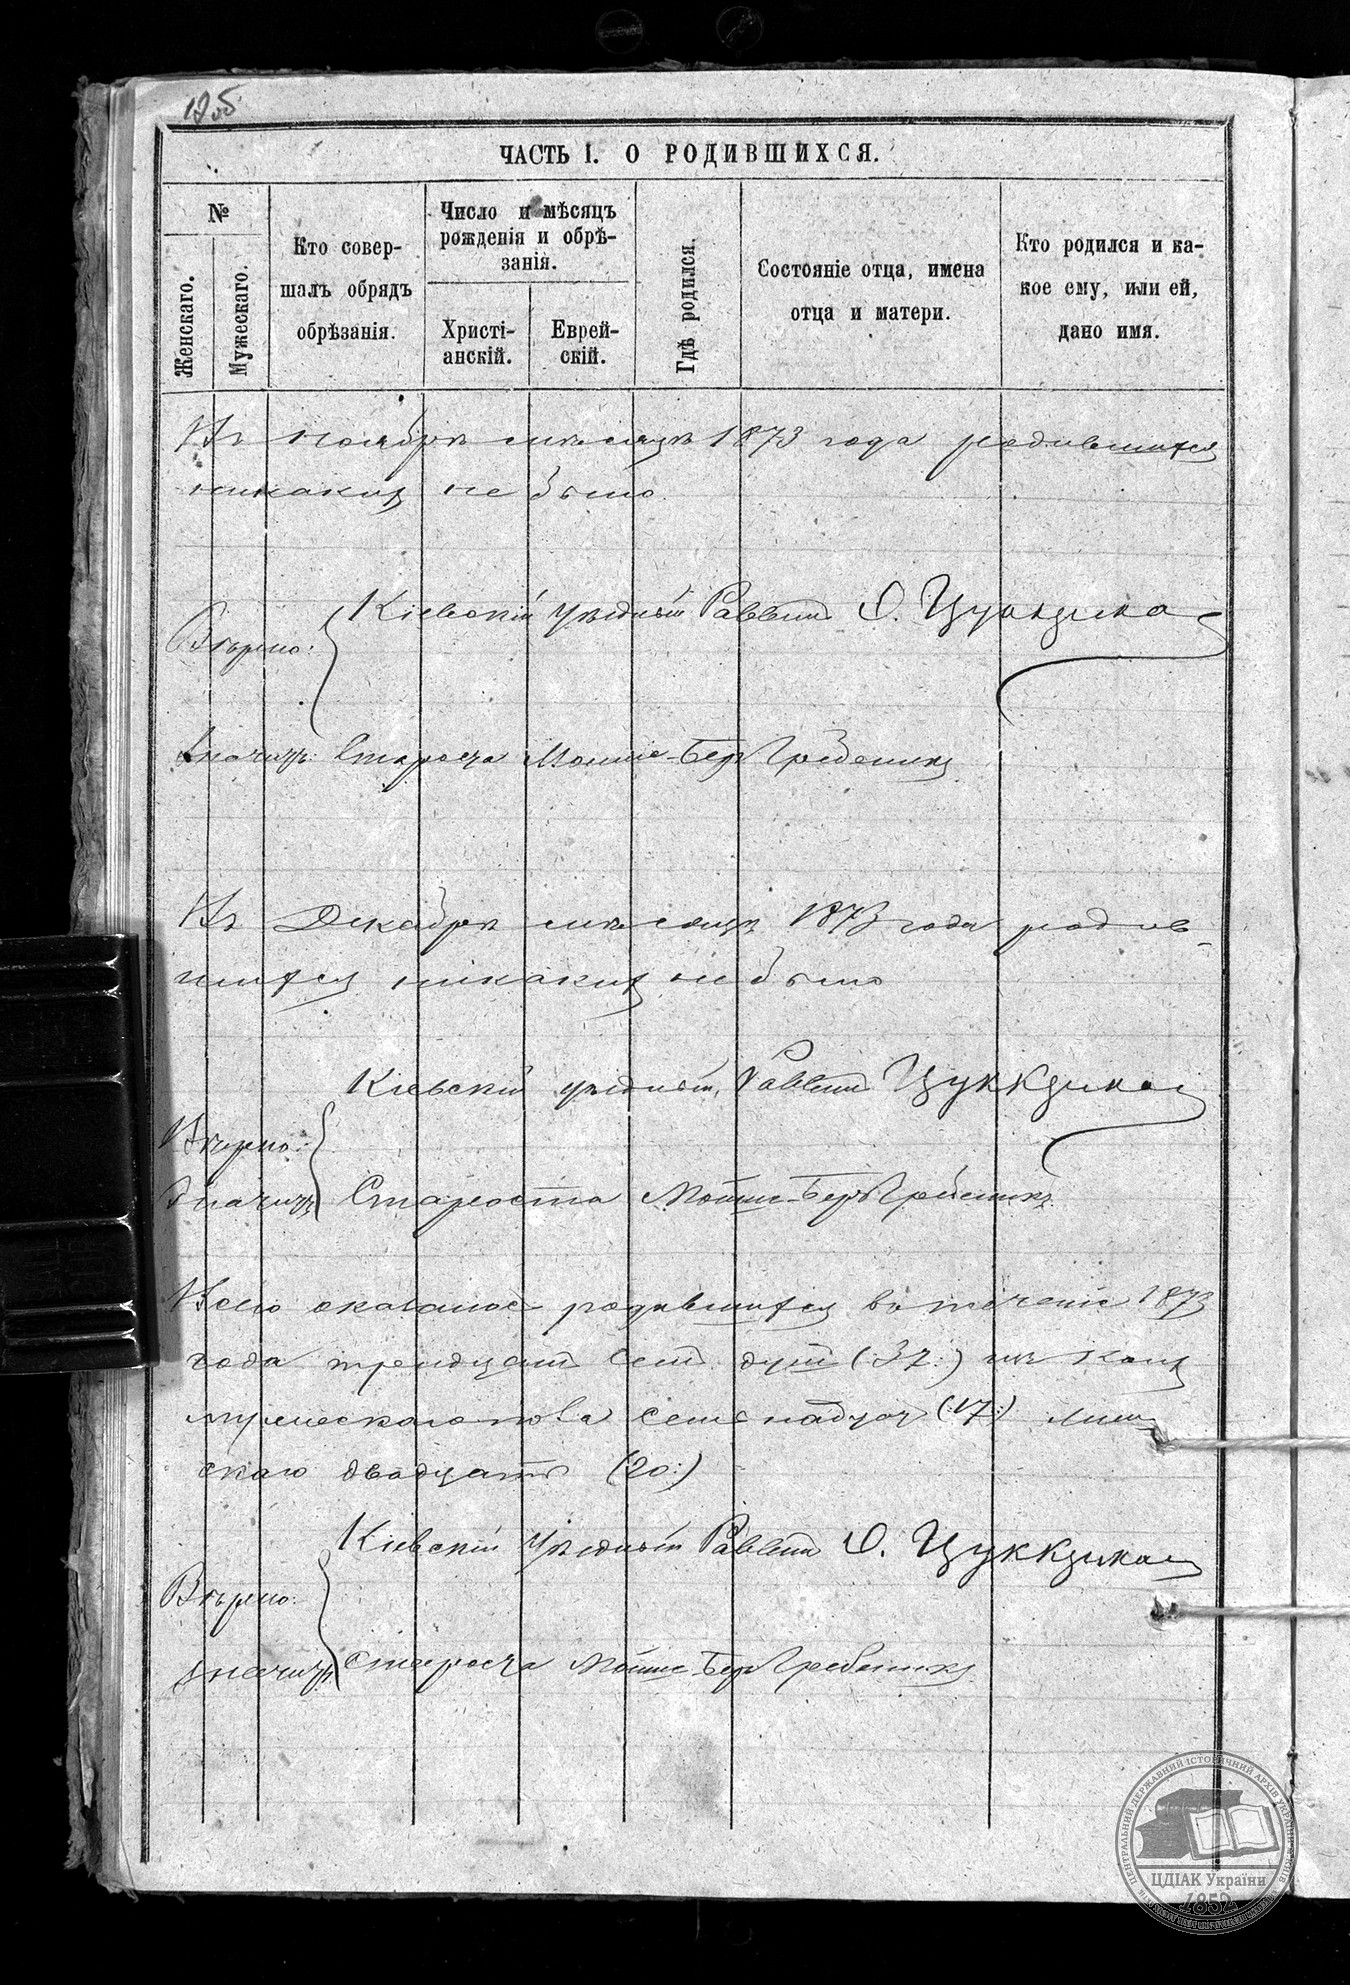 ЧАСТЬ I. О РОДИВШИХСЯ.
№
Женскаго.
Мужескаго.
Кто совер-
шалъ обрядъ
обрѣзанія.
Число и мѣсяцъ
рожденія и обрѣ-
занія.
Христі-
анскій.
Еврей-
скій.
Гдѣ родился.
Состояніе отца, имена
отца и матери.
Кто родился и ка-
кое ему, или ей,
дано имя.
Въ ноябрѣ мѣсяцѣ 1873 года родившихся
никакихъ не было
Кіевскій уѣздный Раввинъ
Вѣрно:
Староста Мошко-Беръ Гребеникъ
Въ Декабрѣ мѣсяцѣ 1873 года родив-
шихся никакихъ не было
Кіевскій уѣздный Раввинъ
Вѣрно:
Староста Мошко-Беръ Гребеникъ
Всего оказалось родившихся въ теченіе 1873
года тридцать семъ душъ (:37:)
мужескаго пола семнадцать (:17:)
скаго двадцать (:20:)
Кіевскій уѣздный Раввинъ
Вѣрно:
Староста Мошко-Беръ Гребеникъ
ЦЕНТРАЛЬНИЙ ДЕРЖАВНИЙ ІСТОРИЧНИЙ АРХІВ УКРАЇНИ
ЦДІАК України
1852